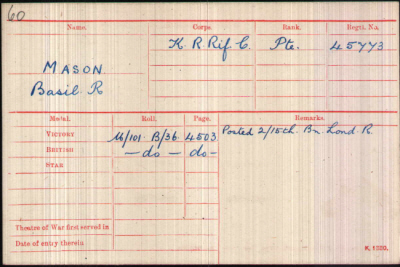 60
Name. Corps. Rank. Regtl. No.
K. R. Rif. C. Pte. 45773
MASON
Basil R
Medal. Roll. Page. Remarks.
VICTORY M/101 B/36 4503 Posted 2/15th. Bn. Lond R.
BRITISH — do — — do —
STAR
Theatre of War first served in
Date of entry therein
K. 1380.